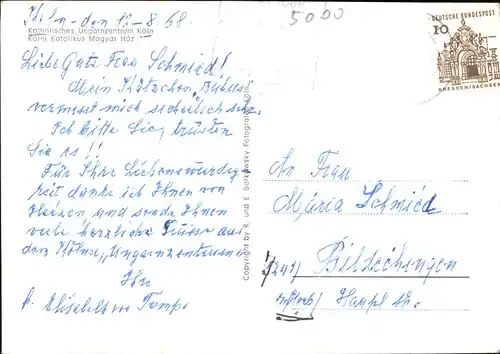 Köln - den 12-8.68.
Katholisches Ungarnzentrum Köln
Kölni Katolikus Magyar Ház
5000
Liebe Gute Frau Schmied!
Mein Kätzchen „Bubus"
vermisst mich sicherlich sehr.
Ich bitte Sie, trösten
Sie es!!
Für Ihre Liebenswürdig
keit danke ich Ihnen von
Herzen und sende Ihnen
viele herzliche Grüsse aus
dem Kölner „Ungarnzentrum"
Ihr
Copyright by R. und E. Borkowsky Fotografen Köln
DEUTSCHE BUNDESPOST
10
DRESDEN/SACHSEN
An Frau
Maria Schmied
7241) Bildechingen
Haupt Str.